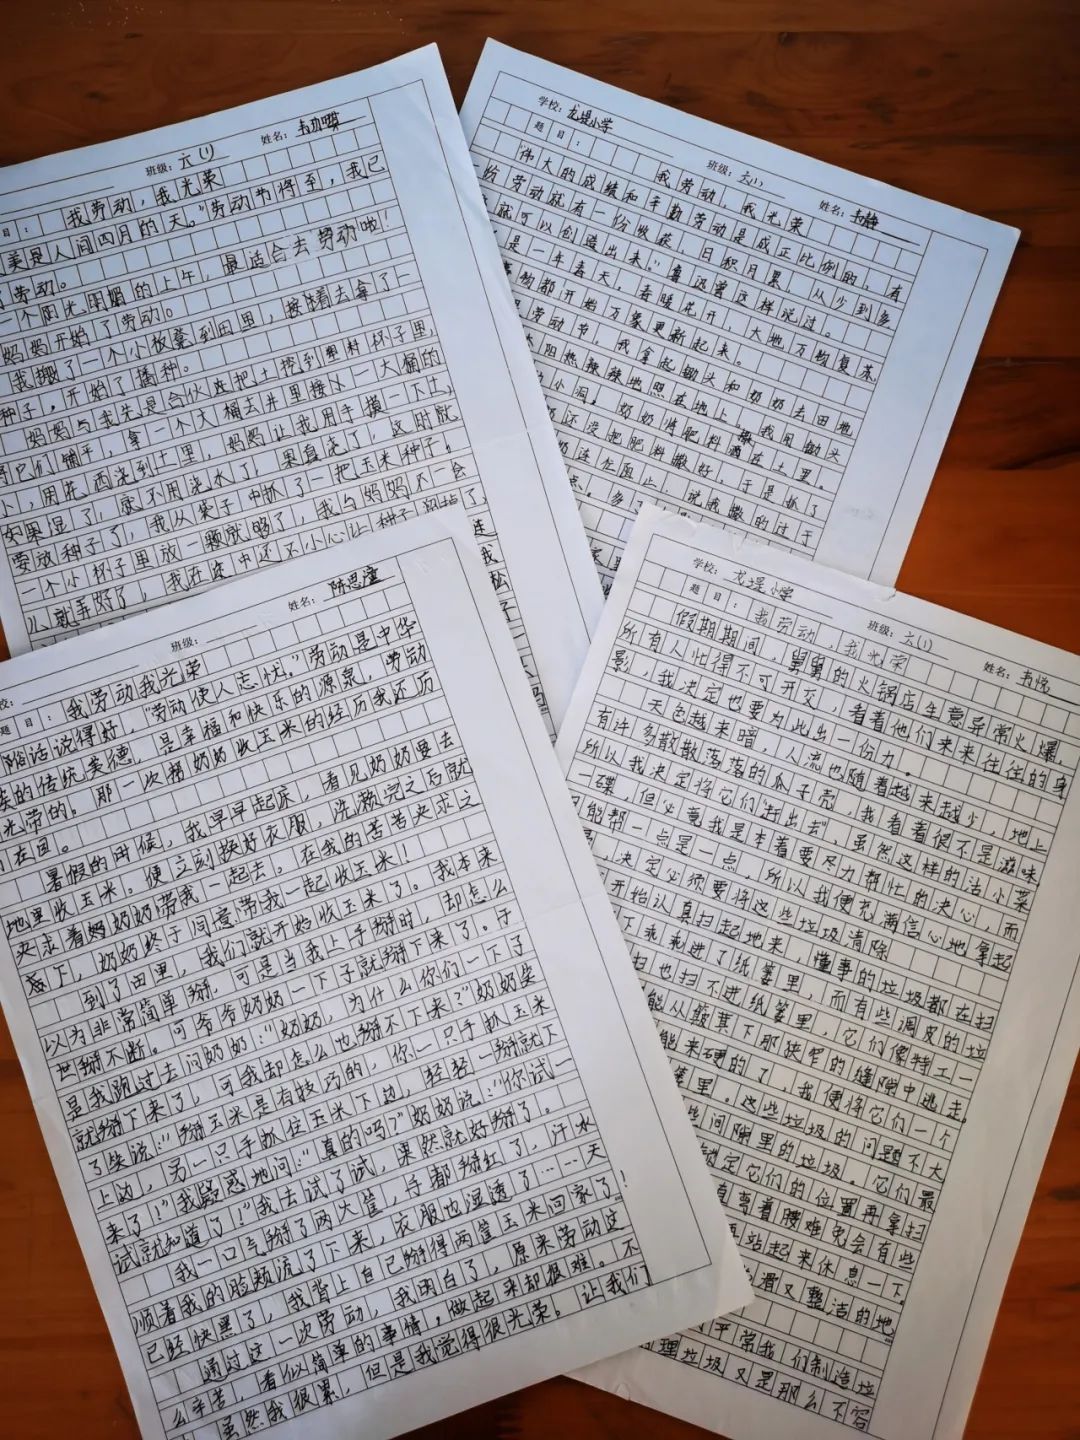 班级：六(1) 姓名：
我劳动，我光荣
美是人间四月的天。"劳动节将至，我已
劳动。
一个阳光明媚的上午，最适合去劳动啦！
妈妈开始了劳动。
我搬了一个小板凳到田里，接着去拿了一
种子，开始了播种。
妈妈与我先是合伙在把土挖到塑料杯子里，
它们铺平，拿一个大桶去井里接以一大桶的
，用东西浇到土里，妈妈让我用手摸一下土，
如果湿了，就不用浇水了，果真浇了，这时就
要放种子了，我从袋子中抓了一把玉米种子。
一个小杯子里放一颗就够了，我与妈妈不一会
儿就弄好了，我在途中还不小心让种子
学校：龙堤小学 班级：六(1) 姓名：韦静
题目： 我劳动，我光荣
伟大的成绩和辛勤劳动是成正比例的，有
份劳动就有一份收获，日积月累，从少到多
就可以创造出来。"鲁迅曾这样说过。
是一年春天，春暖花开，大地万物复苏
物都开始万象更新起来。
劳动节，我拿起锄头和奶奶去田地
阳热辣辣地照在地上，我用锄头
小洞。奶奶将肥料洒在土里。
还没把肥料撒好，于是抓了
奶连忙阻止，说我撒的过于
点。多了
学校： 班级： 姓名：陈思潼
题目：我劳动我光荣
俗话说得好，"劳动使人忘忧。"劳动是中华
族的传统美德，是幸福和快乐的源泉，劳动
光带的。那一次帮奶奶收玉米的经历我还历
在目。
暑假的时候，我早早起床，看见奶奶要去
地里收玉米。便立刻换好衣服，洗漱完之后就
央求着奶奶带我一起去。在我的苦苦央求之
下，奶奶终于同意带我一起收玉米！
到了田里，我们就开始收玉米了。我本来
以为非常简单掰，可是当我上手掰时，却怎么
也掰不断。可爷爷奶奶一下子就掰下来了。于
是我跑过去问奶奶："奶奶，为什么你们一下子
就掰下来了，可我却怎么也掰不下来？"奶奶笑
了笑说："掰玉米是有技巧的，你一只手抓玉米
上边，另一只手抓住玉米下边，轻轻一掰就下
来了！"我疑惑地问："真的吗？"奶奶说："你试一
试就知道了！"我去试了试，果然就好掰了。
我一口气掰了两大筐，手都掰红了，汗水
顺着我的脸颊流了下来，衣服也湿透了……天
已经快黑了，我背上自己掰得两筐玉米回家了！
通过这一次劳动，我明白了，原来劳动这
么辛苦，看似简单的事情，做起来却很难。不
虽然我很累，但是我觉得很光荣。让我们
学校：龙堤小学 班级：六(1) 姓名：韦悦
题目：我劳动，我光荣
假期期间，舅舅的火锅店生意异常火爆，
所有人忙得不可开交，看着他们来来往往的身
影，我决定也要为此出一份力。
天色越来暗，人流也随着越来越少，地上
有许多散散落落的瓜子壳，我看着很不是滋味，
所以我决定将它们"赶出去"，虽然这样的活小菜
一碟，但必竟我是本着要尽力帮忙的决心，而
能帮一点是一点，所以我便充满信心地拿起
，决定必须要将这些垃圾清除
开始认真扫起地来，懂事的垃圾都在扫
下乖乖进了纸篓里，而有些调皮的垃
扫也扫不进纸篓里，它们像特工一
能从簸箕下那狭窄的缝隙中逃走。
能来硬的了，我便将它们一个
篓里。这些垃圾的问题不大
些间隙里的垃圾。它们最
锁定它们的位置再拿扫
弯着腰难免会有些
站起来休息一下。
滑又整洁的地
平常我们制造垃
理垃圾又是那么不容